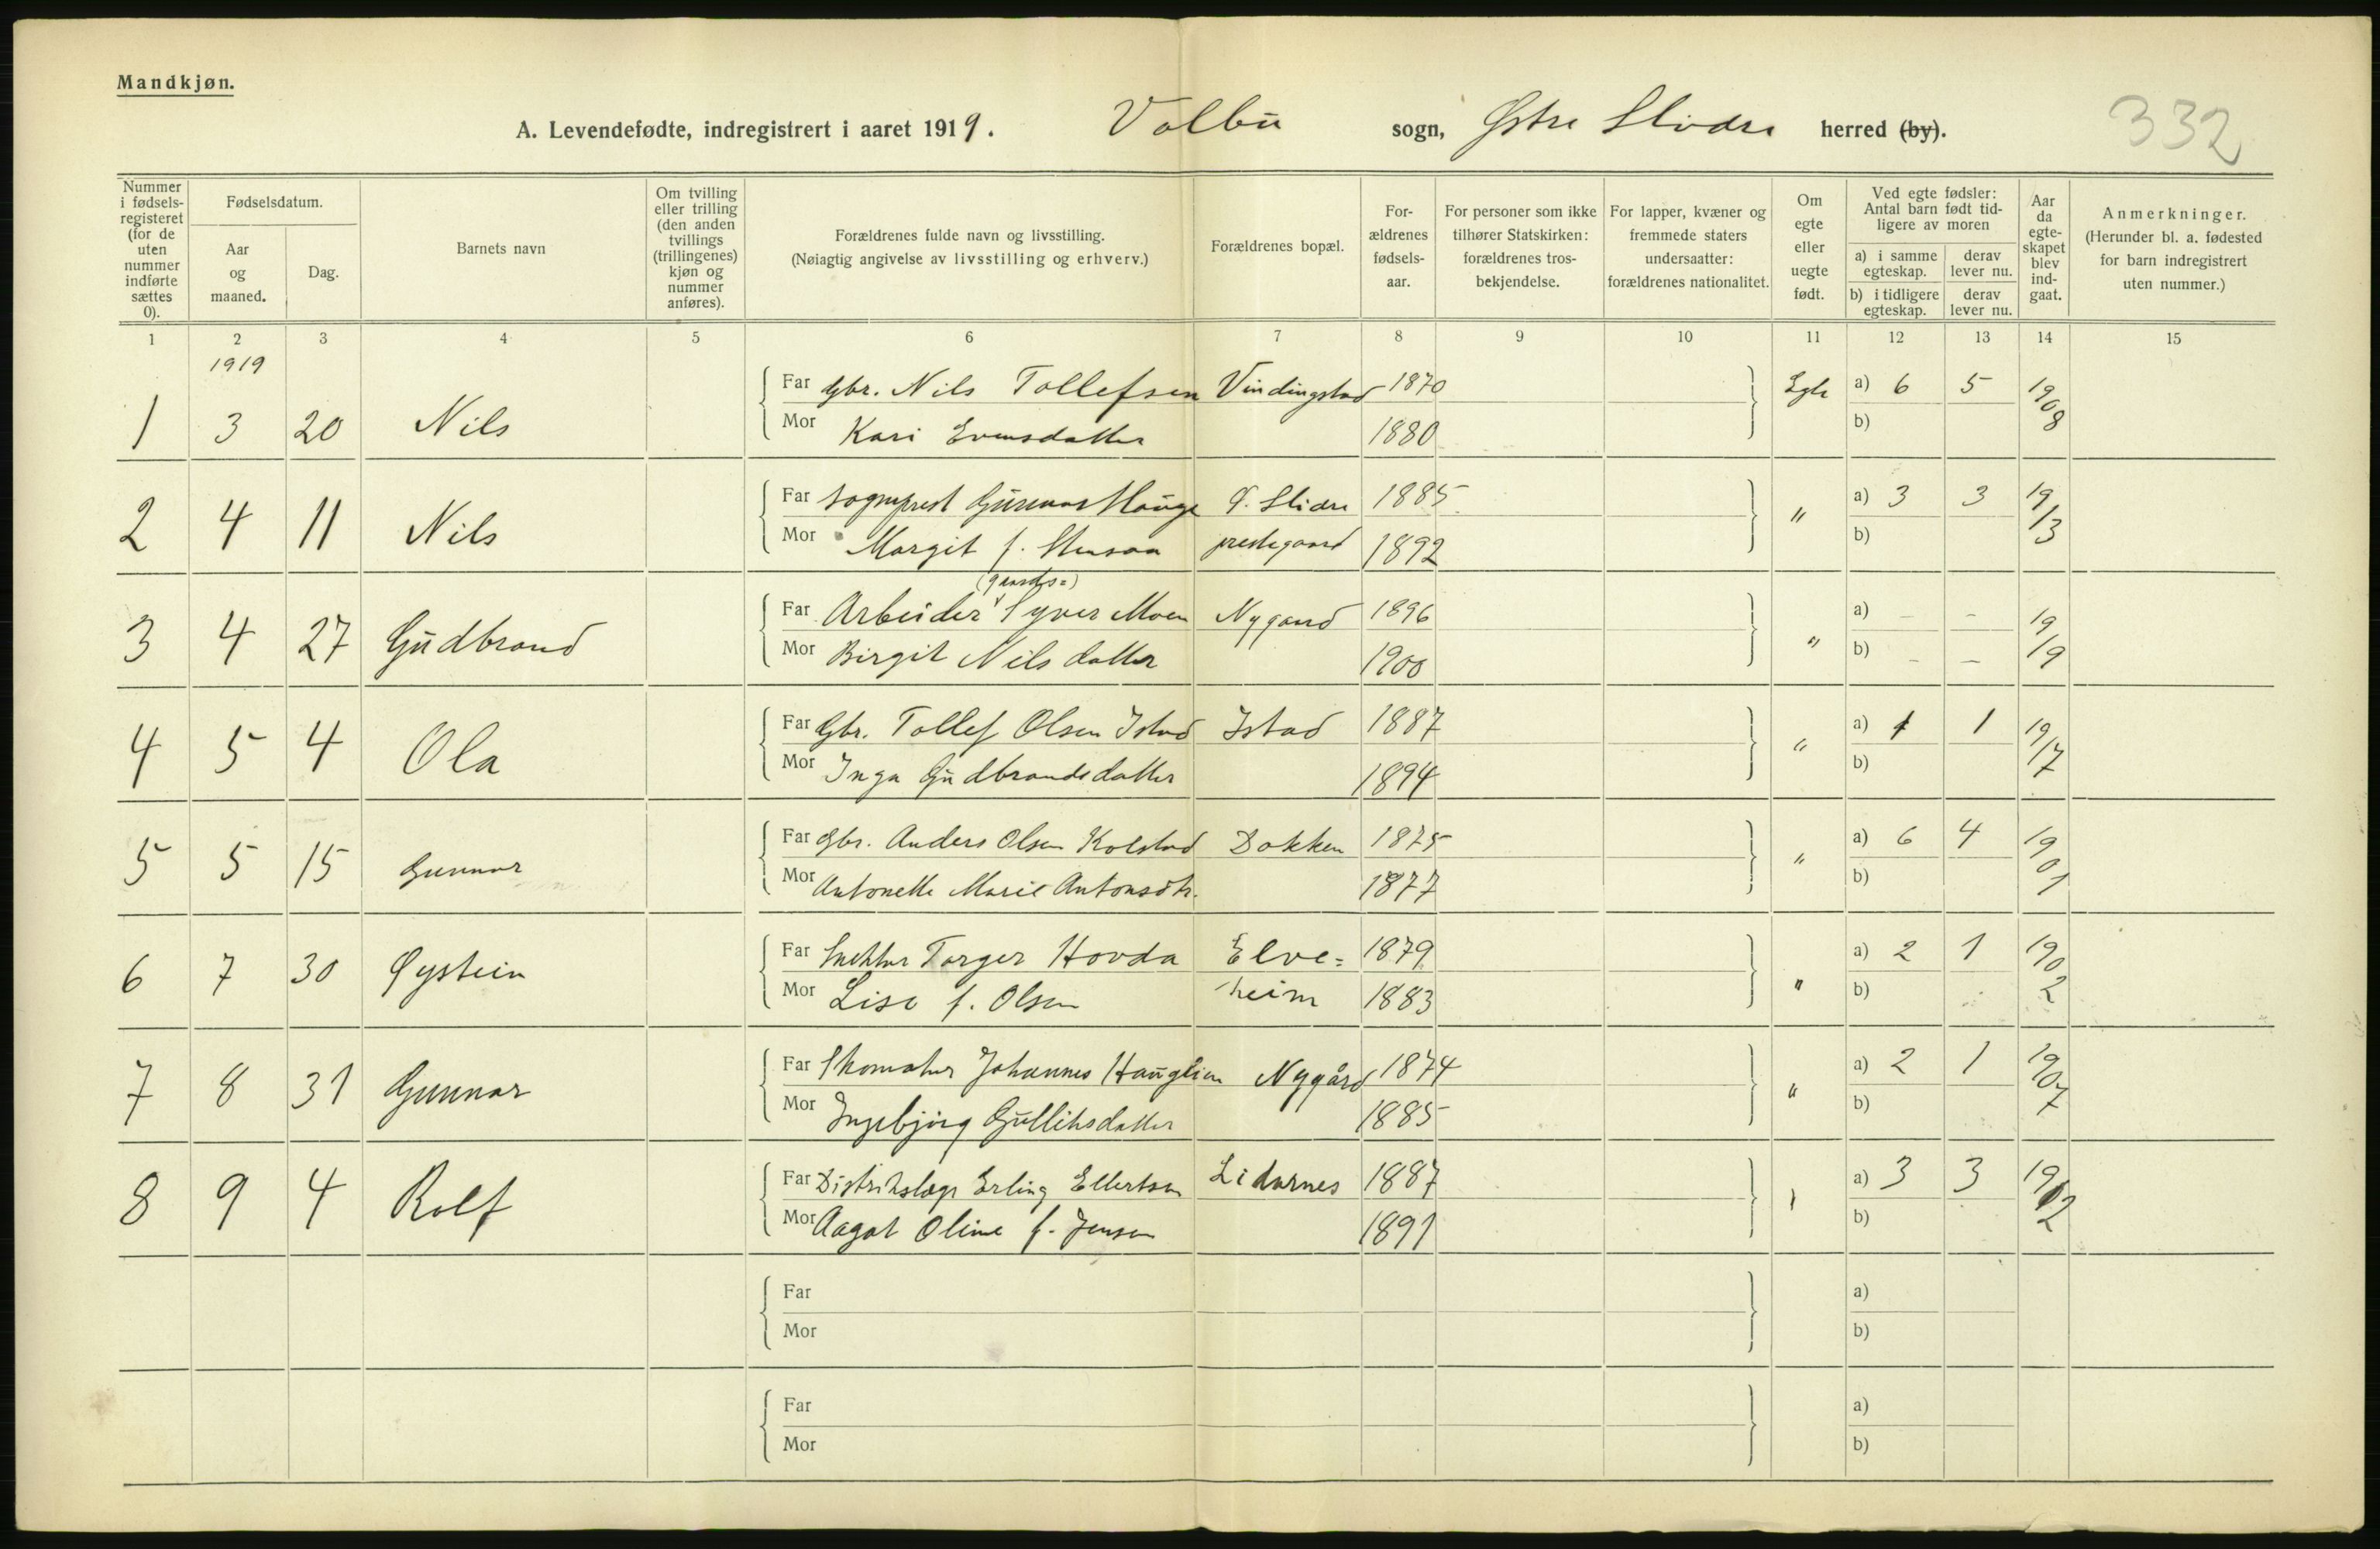 Mandkjøn.
332
A. Levendefødte, indregistrert i aaret 1919. Volbu sogn, Østre Slidre herred (by).
Nummer i fødsels-registeret (for de uten nummer indførte sættes 0).
Fødselsdatum.
Aar og maaned.
Dag.
Barnets navn
Om tvilling eller trilling (den anden tvillings (trillingenes) kjøn og nummer anføres).
Forældrenes fulde navn og livsstilling.
(Nøiagtig angivelse av livsstilling og erhverv.)
Forældrenes bopæl.
For-ældrenes fødsels-aar.
For personer som ikke tilhører Statskirken: forældrenes tros-bekjendelse.
For lapper, kvæner og fremmede staters undersaatter: forældrenes nationalitet.
Om egte eller uegte født.
Ved egte fødsler: Antal barn født tid-ligere av moren
a) i samme egteskap.
derav lever nu.
b) i tidligere egteskap.
derav lever nu.
Aar da egte-skapet blev ind-gaat.
Anmerkninger.
(Herunder bl. a. fødested for barn indregistrert uten nummer.)
1 2 3 4 5 6 7 8 9 10 11 12 13 14 15
1919
1 3 20 Nils Far Gbr. Nils Tollefsen Vindingstad 1870 Egte a) 6 5 1908
Mor Kari Evensdatter 1880 b)
2 4 11 Nils Far Sogneprest Gunnar Hauge Ø. Slidre 1885 " a) 3 3 19/13
Mor Margit f. prestegaard 1892 b)
(gaards=)
3 4 27 Gudbrand Far Arbeider Syver Moen Nygaard 1896 " a) – – 19/19
Mor Birgit Nilsdatter 1900 b) – –
4 5 4 Ola Far Gbr. Tollef Olsen Istad Istad 1887 " a) 1 1 19/17
Mor Inga Gudbrandsdatter 1894 b)
5 5 15 Gunnar Far Gbr. Anders Olsen Kolstad Dokken 1875 " a) 6 4 1901
Mor Antonette Marie Antonsdtr. 1877 b)
6 7 30 Øystein Far Snekker Torger Hovda Elve= 1879 " a) 2 1 1902
Mor Lise f. Olsen heim 1883 b)
7 8 31 Gunnar Far Skomaker Johannes Hauglien Nygård 1874 " a) 2 1 1907
Mor Ingebjørg Gulliksdatter 1885 b)
8 9 4 Rolf Far Distriktslæge Erling Ellertsen Lidarnes 1887 " a) 3 3 1912
Mor Aagot Oline f. Jensen 1891 b)
Far a)
Mor b)
Far a)
Mor b)